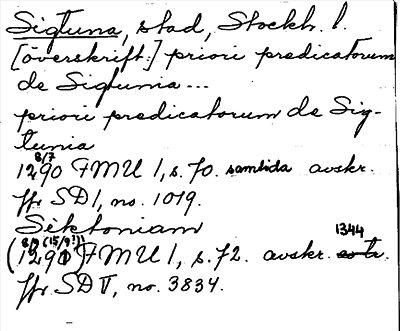 Sigtuna, stad, Stockh. l.
[överskrift:] priori predicatorum
de Sigtunia...
priori predicatorum de Sig-
tunia
8/7
1290 FMU 1, s. 70. samtida avskr.
fr SD 1, no. 1019.
Sēktoniam
8/9 (15/9?) 1344
(1291) FMU 1, s. 72. avskr.
fr SD V, no. 3834.